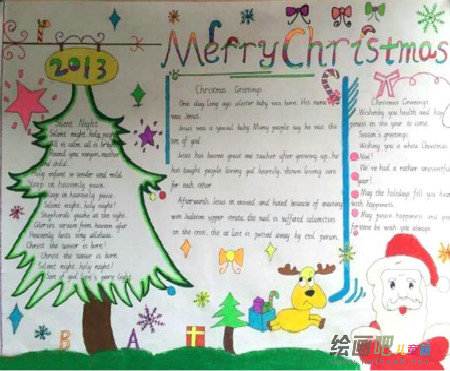 Merry Christmas
2013
Silent Night
Silent night, holy night
All is calm, all is bright
Round you virgin mother
and child
Holy infant so tender and mild
Sleep in heavenly peace
Sleep in heavenly peace
Silent night, holy night!
Shepherds quake at the sight
Glories stream from heaven afar
Heavenly hosts sing alleluia
Christ the savior is born!
Christ the savior is born
Silent night, holy night!
Son of god love's pure light
Christmas Greetings
One day long ago after baby was born. His name
was Jesus.
Jesus was a special baby. Many people say he was the
son of god.
Jesus has become great one teacher after growing up, he
has taught people loving god heavenly, shown loving care
for each other
Afterwards Jesus is envied and hated because of
on the cross, he at last is passed away by evil person.
Christmas Greetings
Wishing you health and happiness
in the year to come.
Season's greetings.
Wishing you a white Christmas
Noel!
We've had a rather uneventful
year!
May the holidays fill you
happiness.
May peace happiness and good
fortune be wish you always
B A
绘画吧儿童画